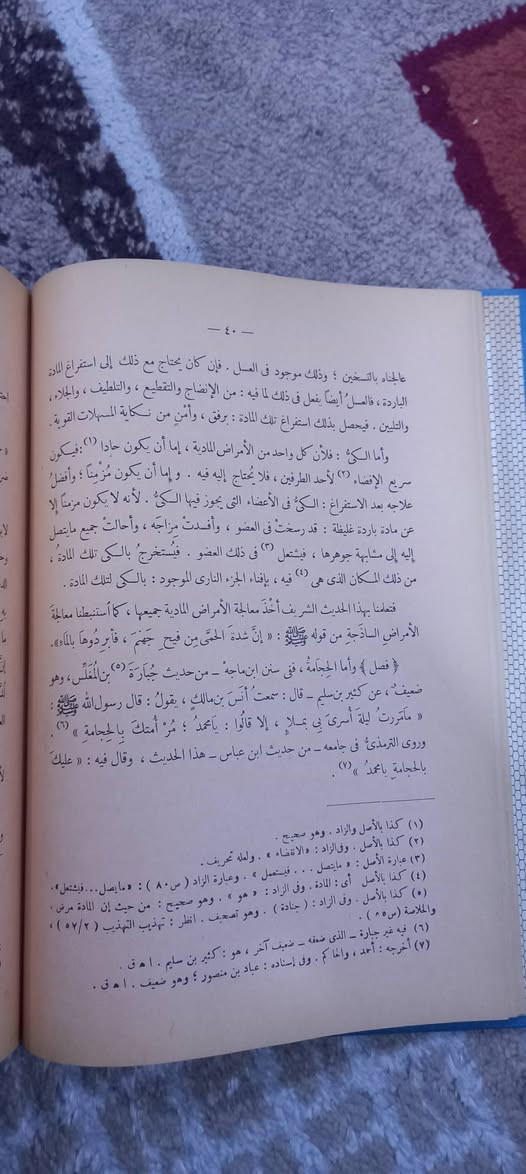 — ٤٠ —
عالجناه بالتسخين ؛ وذلك موجود فى العسل . فإن كان يحتاج مع ذلك إلى استفراغ المادة
الباردة ، فالعسلُ أيضاً يفعل فى ذلك لما فيه : من الإنضاج والتقطيع ، والتلطيف ، والجلاء ،
والتليين . فيحصل بذلك استفراغ تلك المادة : برفق ، وأمْنٍ من نكاية المسهلات القوية .
وأما الكىُّ : فلأن كل واحد من الأمراض المادية ، إما أن يكون حادا (١) : فيكون
سريع الإفضاء (٢) لأحد الطرفين ، فلا يُحتاج إليه فيه . وإما أن يكون مُزْمِناً ؛ وأفضلُ
علاجه بعد الاستفراغ : الكىُّ فى الأعضاء التى يجوز فيها الكىُّ . لأنه لا يكون مزمناً إلا
عن مادة باردة غليظة : قد رسختْ فى العضو ، وأفسدتْ مزاجَه ، وأحالتْ جميع مايتصل
إليه إلى مشابهة جوهرها ، فيشتعل (٣) فى ذلك العضو . فيُستخرجُ بالكى تلك المادةُ ،
من ذلك المكان الذى هى (٤) فيه ، بإفناء الجزء النارى الموجود : بالكى لتلك المادة .
فتعلمنا بهذا الحديث الشريف أخْذَ معالجة الأمراض المادية جميعها ، كما استنبطنا معالجةَ
الأمراضِ الساذَجة من قوله ﷺ : « إنَّ شدةَ الحُمَّى مِن فيحِ جَهنمَ ، فأَبرِدُوهَا بالمَاءِ ».
﴿ فصل ﴾ وأما الحِجَامةُ ، ففى سنن ابن ماجهْ – من حديث جُبَارَةَ (٥) بن المُغَلِّس، وهو
ضعيفٌ ، عن كثير بن سليم – قال : سمعتُ أنَسَ بن مالكٍ ، يقولُ : قال رسول الله ﷺ :
« ما مَررتُ ليلةَ أُسرىَ بِى بملإٍ ، إلا قالُوا : يامحمدُ ؛ مُرْ أمتَكَ بِالحِجامةِ » (٦) .
وروى الترمذىُّ فى جامعه – من حديث ابن عباس – هذا الحديث ، وقال فيه : « عليكَ
بالحجامةِ يامحمدُ » (٧) .
(١) كذا بالأصل والزاد . وهو صحيح .
(٢) كذا بالأصل . وفى الزاد : « الانقضاء » . ولعله تحريف .
(٣) عبارة الأصل : « مايتصل . . . فيستعمل » . وعبارة الزاد ( س ٨٠ ) : « مايصل . . . فيشتعل» .
(٤) كذا بالأصل أى : المادة . وفى الزاد : « هو » . وهو صحيح : من حيث إن المادة مرض .
(٥) كذا بالأصل . وفى الزاد : ( جنادة ) . وهو تصحيف . انظر : تهذيب التهذيب ( ٥٧/٢ ) ،
والخلاصة (س ٥٩) .
(٦) فيه غير جبارة – الذى ضعفه – ضعيف آخر ، هو : كثير بن سليم . ا ه ق .
(٧) أخرجه : أحمد ، والحاكم . وفى إسناده : عباد بن منصور ؛ وهو ضعيف . ا ه ق .